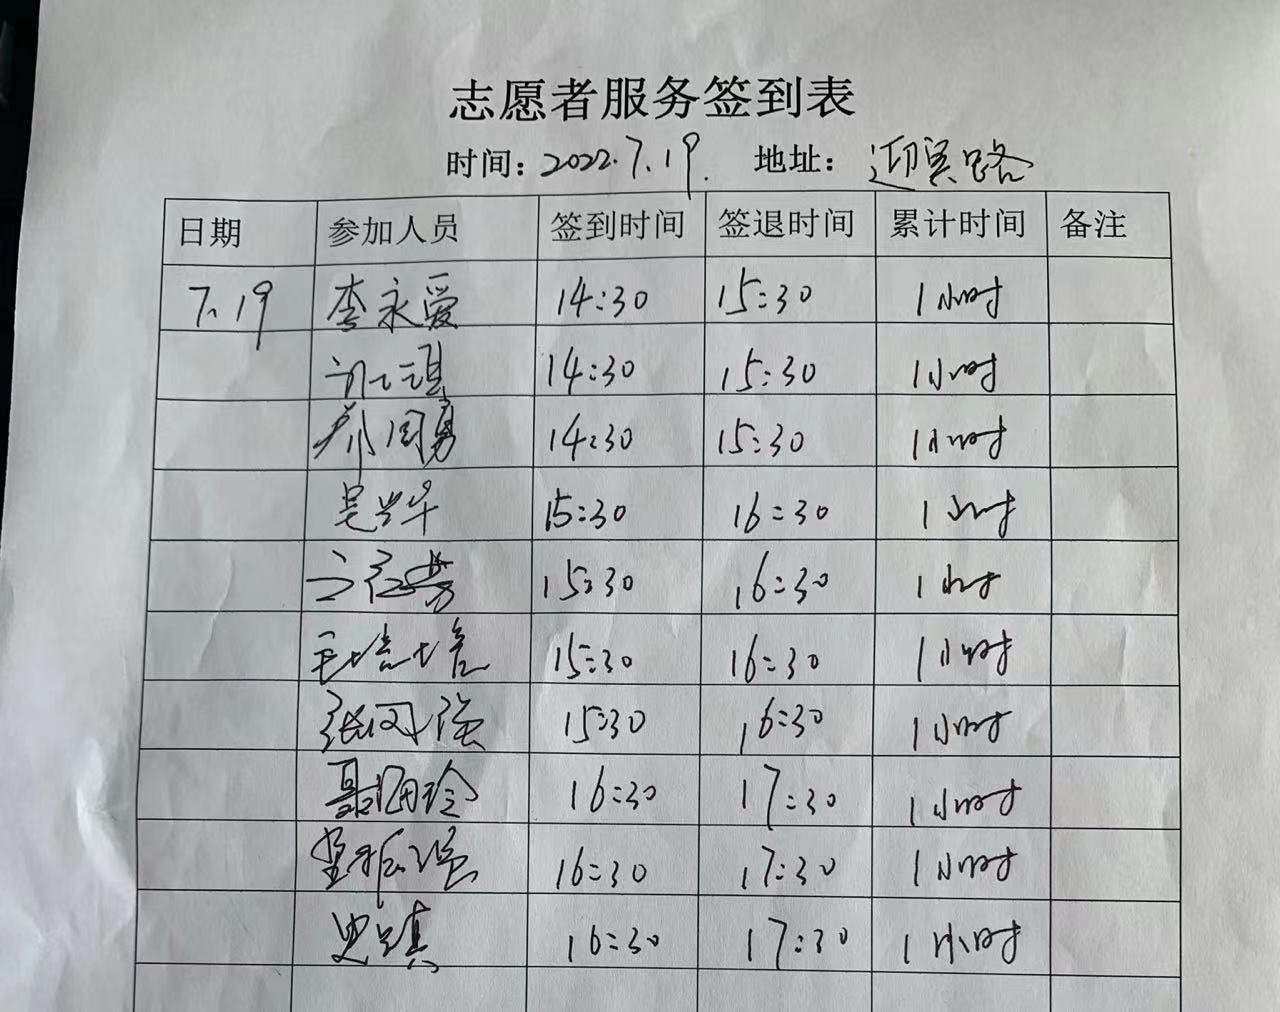 志愿者服务签到表
时间: 2022.7.19. 地址: 迎宾路
日期 参加人员 签到时间 签退时间 累计时间 备注
7.19 李永爱 14:30 15:30 1小时
14:30 15:30 1小时
14:30 15:30 1小时
吴兴华 15:30 16:30 1小时
15:30 16:30 1小时
15:30 16:30 1小时
张 强 15:30 16:30 1小时
聂 玲 16:30 17:30 1小时
16:30 17:30 1小时
史 16:30 17:30 1小时